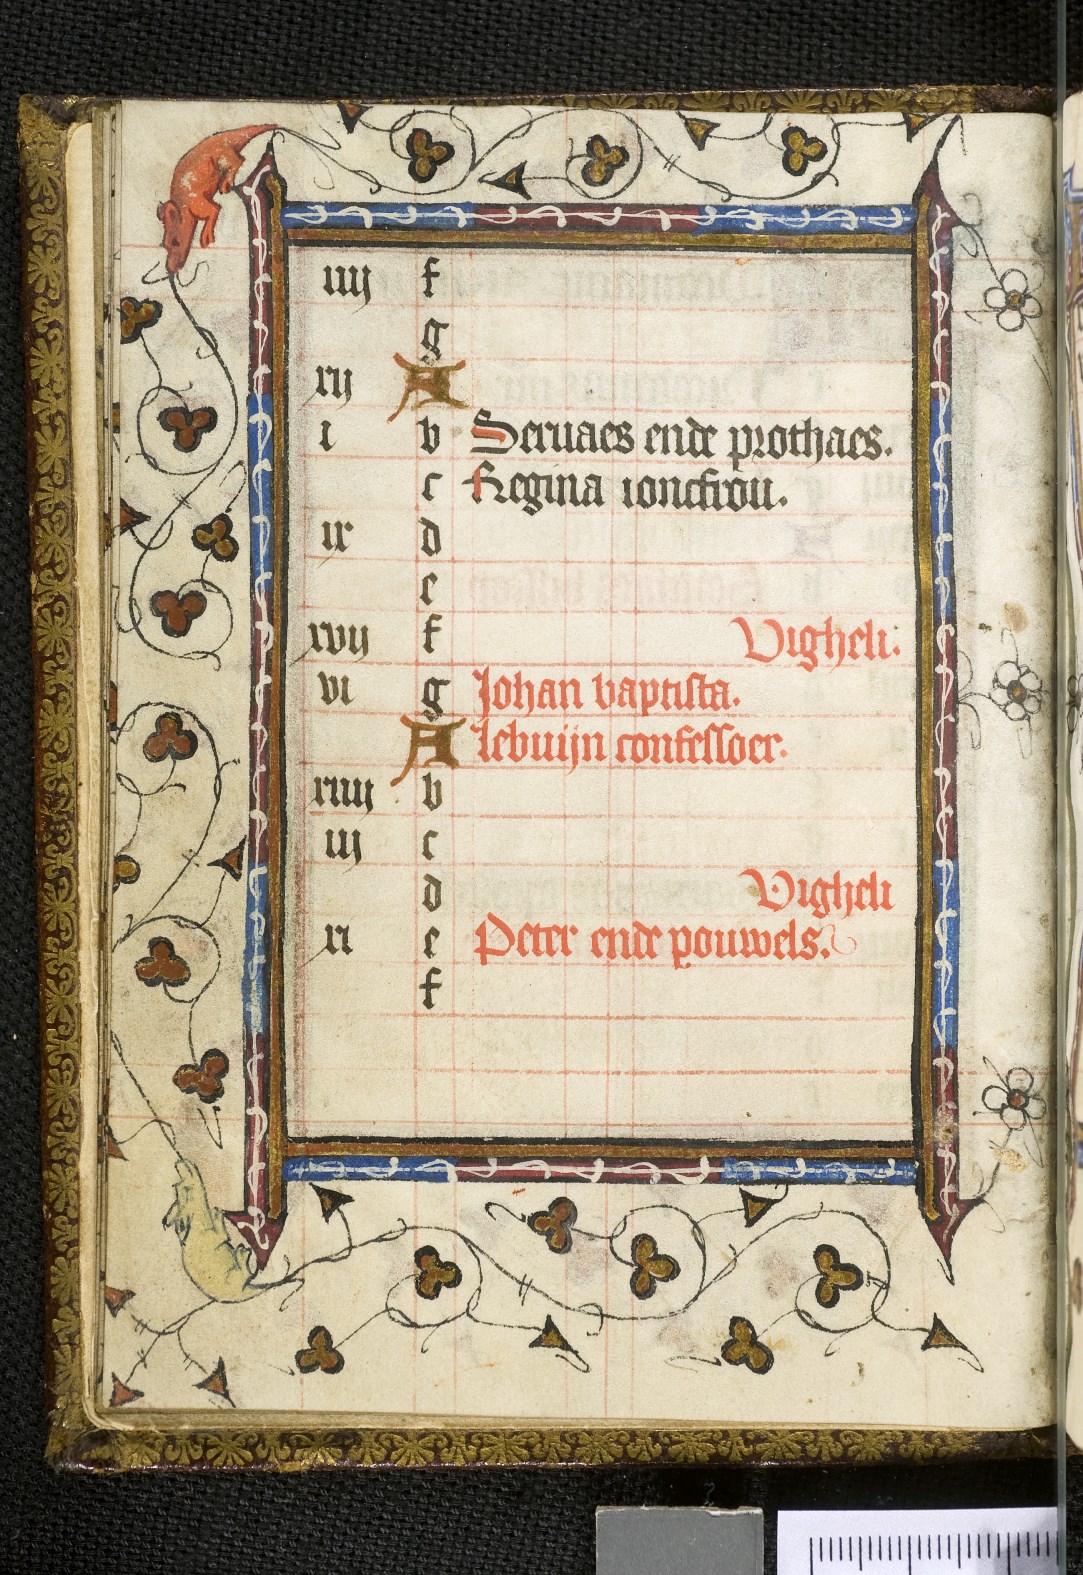 iiij f
g
xij A
i b Seruaes ende prothaes.
c Regina ioncfrou.
ix d
e
xvij f Vigheli.
vi g Johan baptista.
A lebuijn confessoer.
xiiij b
iij c
d Vigheli
xi e Peter ende pouwels.
f